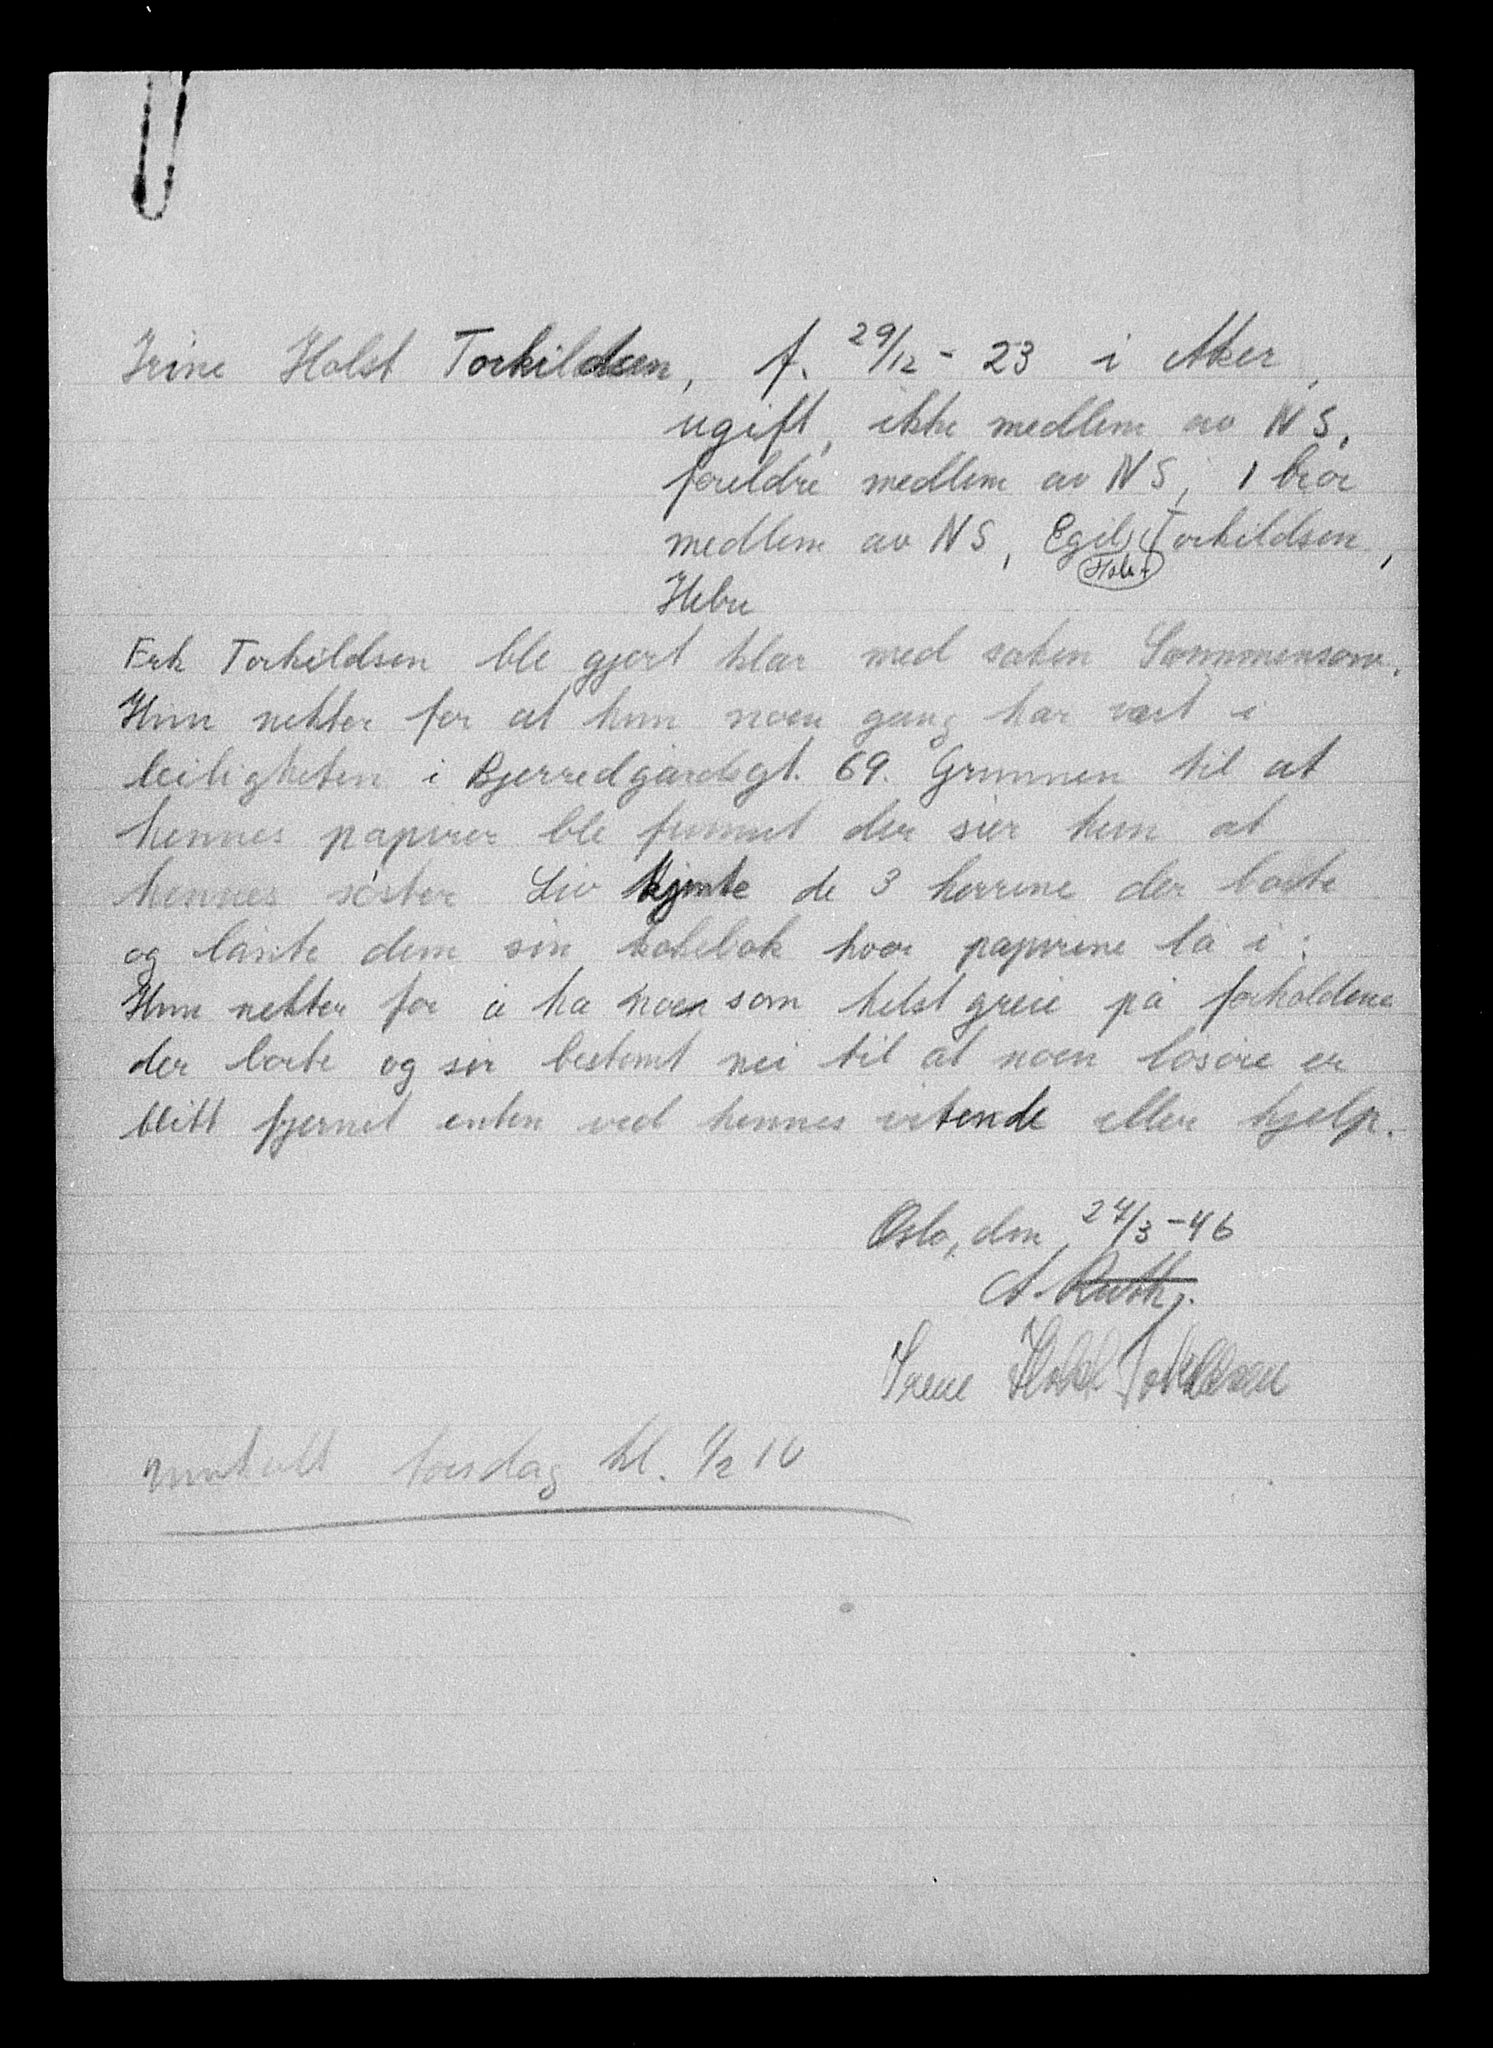 Irine Holst Torkildsen, f. 29/12 - 23 i Aker,
ugift, ikke medlem av NS,
foreldre medlem av NS, 1 bror
medlem av NS, Egil Holst Torkildsen,
Frk Torkildsen ble gjort klar med saken Sammensorv.
Hun nekter for at hun noen gang har vært i
leiligheten i Bjerredgårdsgt. 69. Grunnen til at
hennes papirer ble funnet der sier hun at
hennes søster Liv kjente de 3 herrene der borte
og lånte dem sin notebok hvor papirene lå i.
Hun nekter for å ha noen som helst greie på forholdene
der borte og sier bestemt nei til at noen løsøre er
blitt fjernet enten ved hennes vitende eller hjelp.
Oslo, den 27/3 - 46
A. Ruth.
Irene Holst Torkildsen
innkalt torsdag kl. 1/2 10